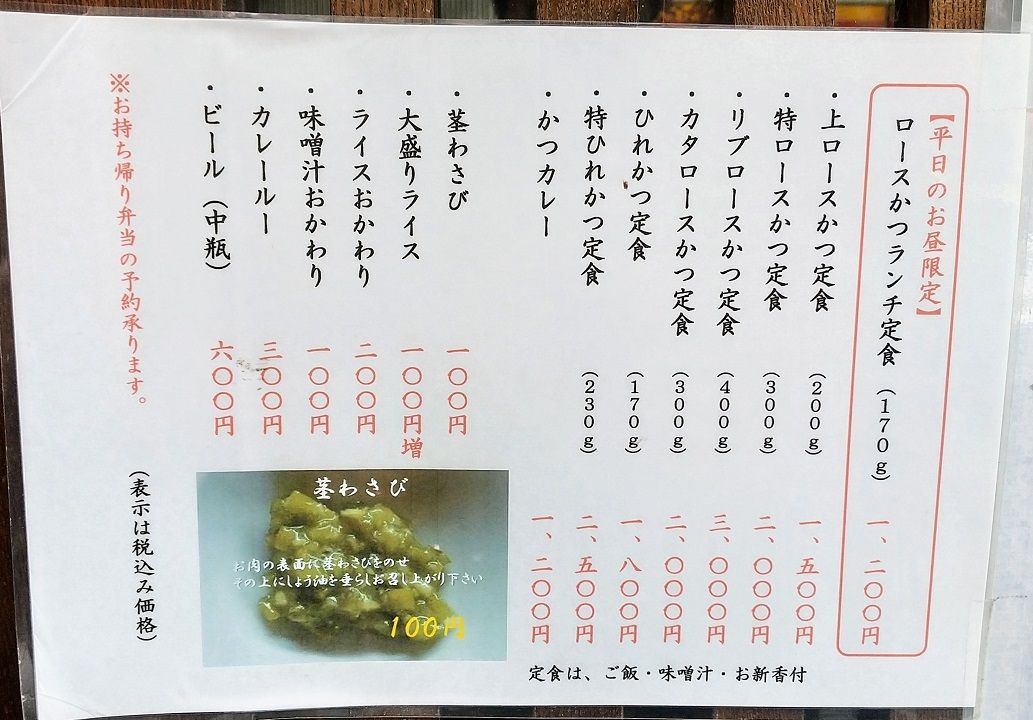 【平日のお昼限定】
ロースかつランチ定食(170g) 一、二〇〇円
・上ロースかつ定食 (200g) 一、五〇〇円
・特ロースかつ定食 (300g) 二、〇〇〇円
・リブロースかつ定食 (400g) 三、〇〇〇円
・カタロースかつ定食 (300g) 二、〇〇〇円
・ひれかつ定食 (170g) 一、八〇〇円
・特ひれかつ定食 (230g) 二、五〇〇円
・かつカレー 一、二〇〇円
定食は、ご飯・味噌汁・お新香付
・茎わさび 一〇〇円
・大盛りライス 一〇〇円増
・ライスおかわり 二〇〇円
・味噌汁おかわり 一〇〇円
・カレールー 三〇〇円
・ビール(中瓶) 六〇〇円
茎わさび
お肉の表面に茎わさびをのせ
その上にしょう油を垂らしお召し上がり下さい
100円
※お持ち帰り弁当の予約承ります。
(表示は税込み価格)